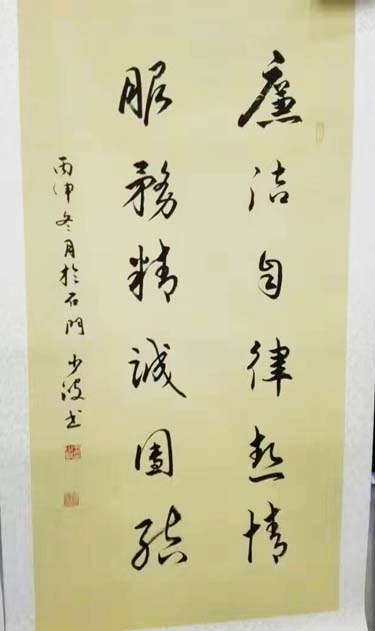 廉洁自律热情
服務精誠团结
丙申冬月於石門 少波书